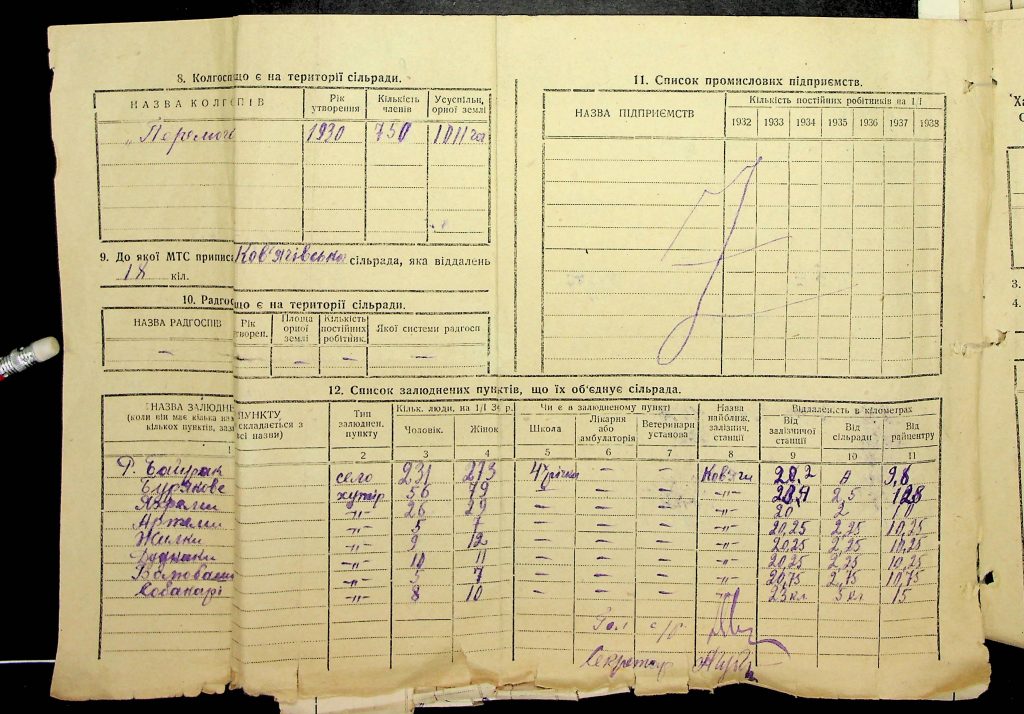 8. Колгосп що є на території сільради.
НАЗВА КОЛГОСПІВ
Рік утворення
Кількість членів
Усуспільн. орної землі
„Перемога 1930 750 1011 га
9. До якої МТС приписа Ков'ягівська сільрада, яка віддалень
18 кіл.
10. Радгос що є на території сільради.
НАЗВА РАДГОСПІВ
Рік утворен.
Площа орної землі
Кількість постійних робітник.
Якої системи радгосп
— — — —
11. Список промислових підприємств.
НАЗВА ПІДПРИЄМСТВ
Кількість постійних робітників на 1/I
1932 1933 1934 1935 1936 1937 1938
12. Список залюднених пунктів, що їх об'єднує сільрада.
НАЗВА ЗАЛЮДНЕ ПУНКТУ
(коли він має кілька на складається з
кількох пунктів, заз всі назви)
Тип залюднен. пункту
Кільк. люди, на 1/I 3 р.
Чоловік.
Жінок
Чи є в залюдненому пункті
Школа
Лікарня або амбулаторія
Ветеринарн установа
Назва найближ. залізнич. станції
Віддаленість в кілометрах
Від залізничої станції
Від сільради
Від райцентру
1 2 3 4 5 6 7 8 9 10 11
село 231 273 4х річна — — Ков'яги
хутір 56 79 — — — -„- 2,5
-„- 26 29 — — — -„- 20 2 10
Артели -„- 5 — — — -„- 20,25 2,25 10,25
Жилки -„- 9 12 — — — -„- 20,25 2,25 10,25
-„- 10 11 — — — -„- 20,25 2,25 10,25
-„- 5 7 — — — -„- 20,75 2,75 10,75
-„- 8 10 — — — -„- 23 кл 3 кл 15
Гол с/р
Секретар
3.
4.